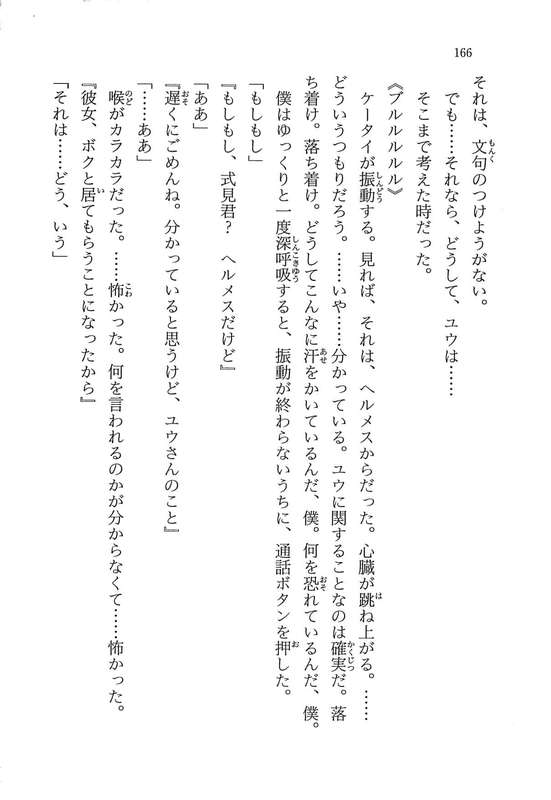 166
それは、文句のつけようがない。
でも……それなら、どうして、ユウは……
そこまで考えた時だった。
《ブルルルルル》
ケータイが振動する。見れば、それは、ヘルメスからだった。心臓が跳ね上がる。……
どういうつもりだろう。……いや……分かっている。ユウに関することなのは確実だ。落
ち着け。落ち着け。どうしてこんなに汗をかいているんだ、僕。何を恐れているんだ、僕。
僕はゆっくりと一度深呼吸すると、振動が終わらないうちに、通話ボタンを押した。
「もしもし」
『もしもし、式見君？　ヘルメスだけど』
「ああ」
『遅くにごめんね。分かっていると思うけど、ユウさんのこと』
「……ああ」
喉がカラカラだった。……怖かった。何を言われるのかが分からなくて……怖かった。
『彼女、ボクと居てもらうことになったから』
「それは……どう、いう」